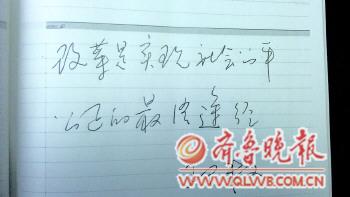 改革是实现社会公平
公正的最佳途径
齐鲁晚报
WWW.QLWB.COM.CN